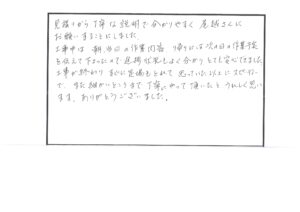 見積りから丁寧な説明で分かりやすく 尾越さんに
お願いすることにしました。
工事中は 朝、当日の作業内容 帰りには次の日の作業予定
を伝えて下さったので進捗状況もよく分かり とても安心でました
工事が終わり すぐに足場もとれて 思っていた以上に スピーディー
で、また細かいところまで 丁寧にやって頂いたと うれしく思い
ます。ありがとうございました。